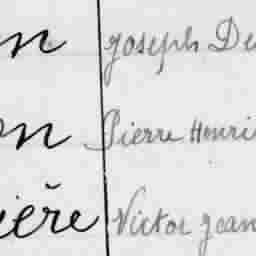 on Joseph De
on Pierre Henri
ière Victor Jean